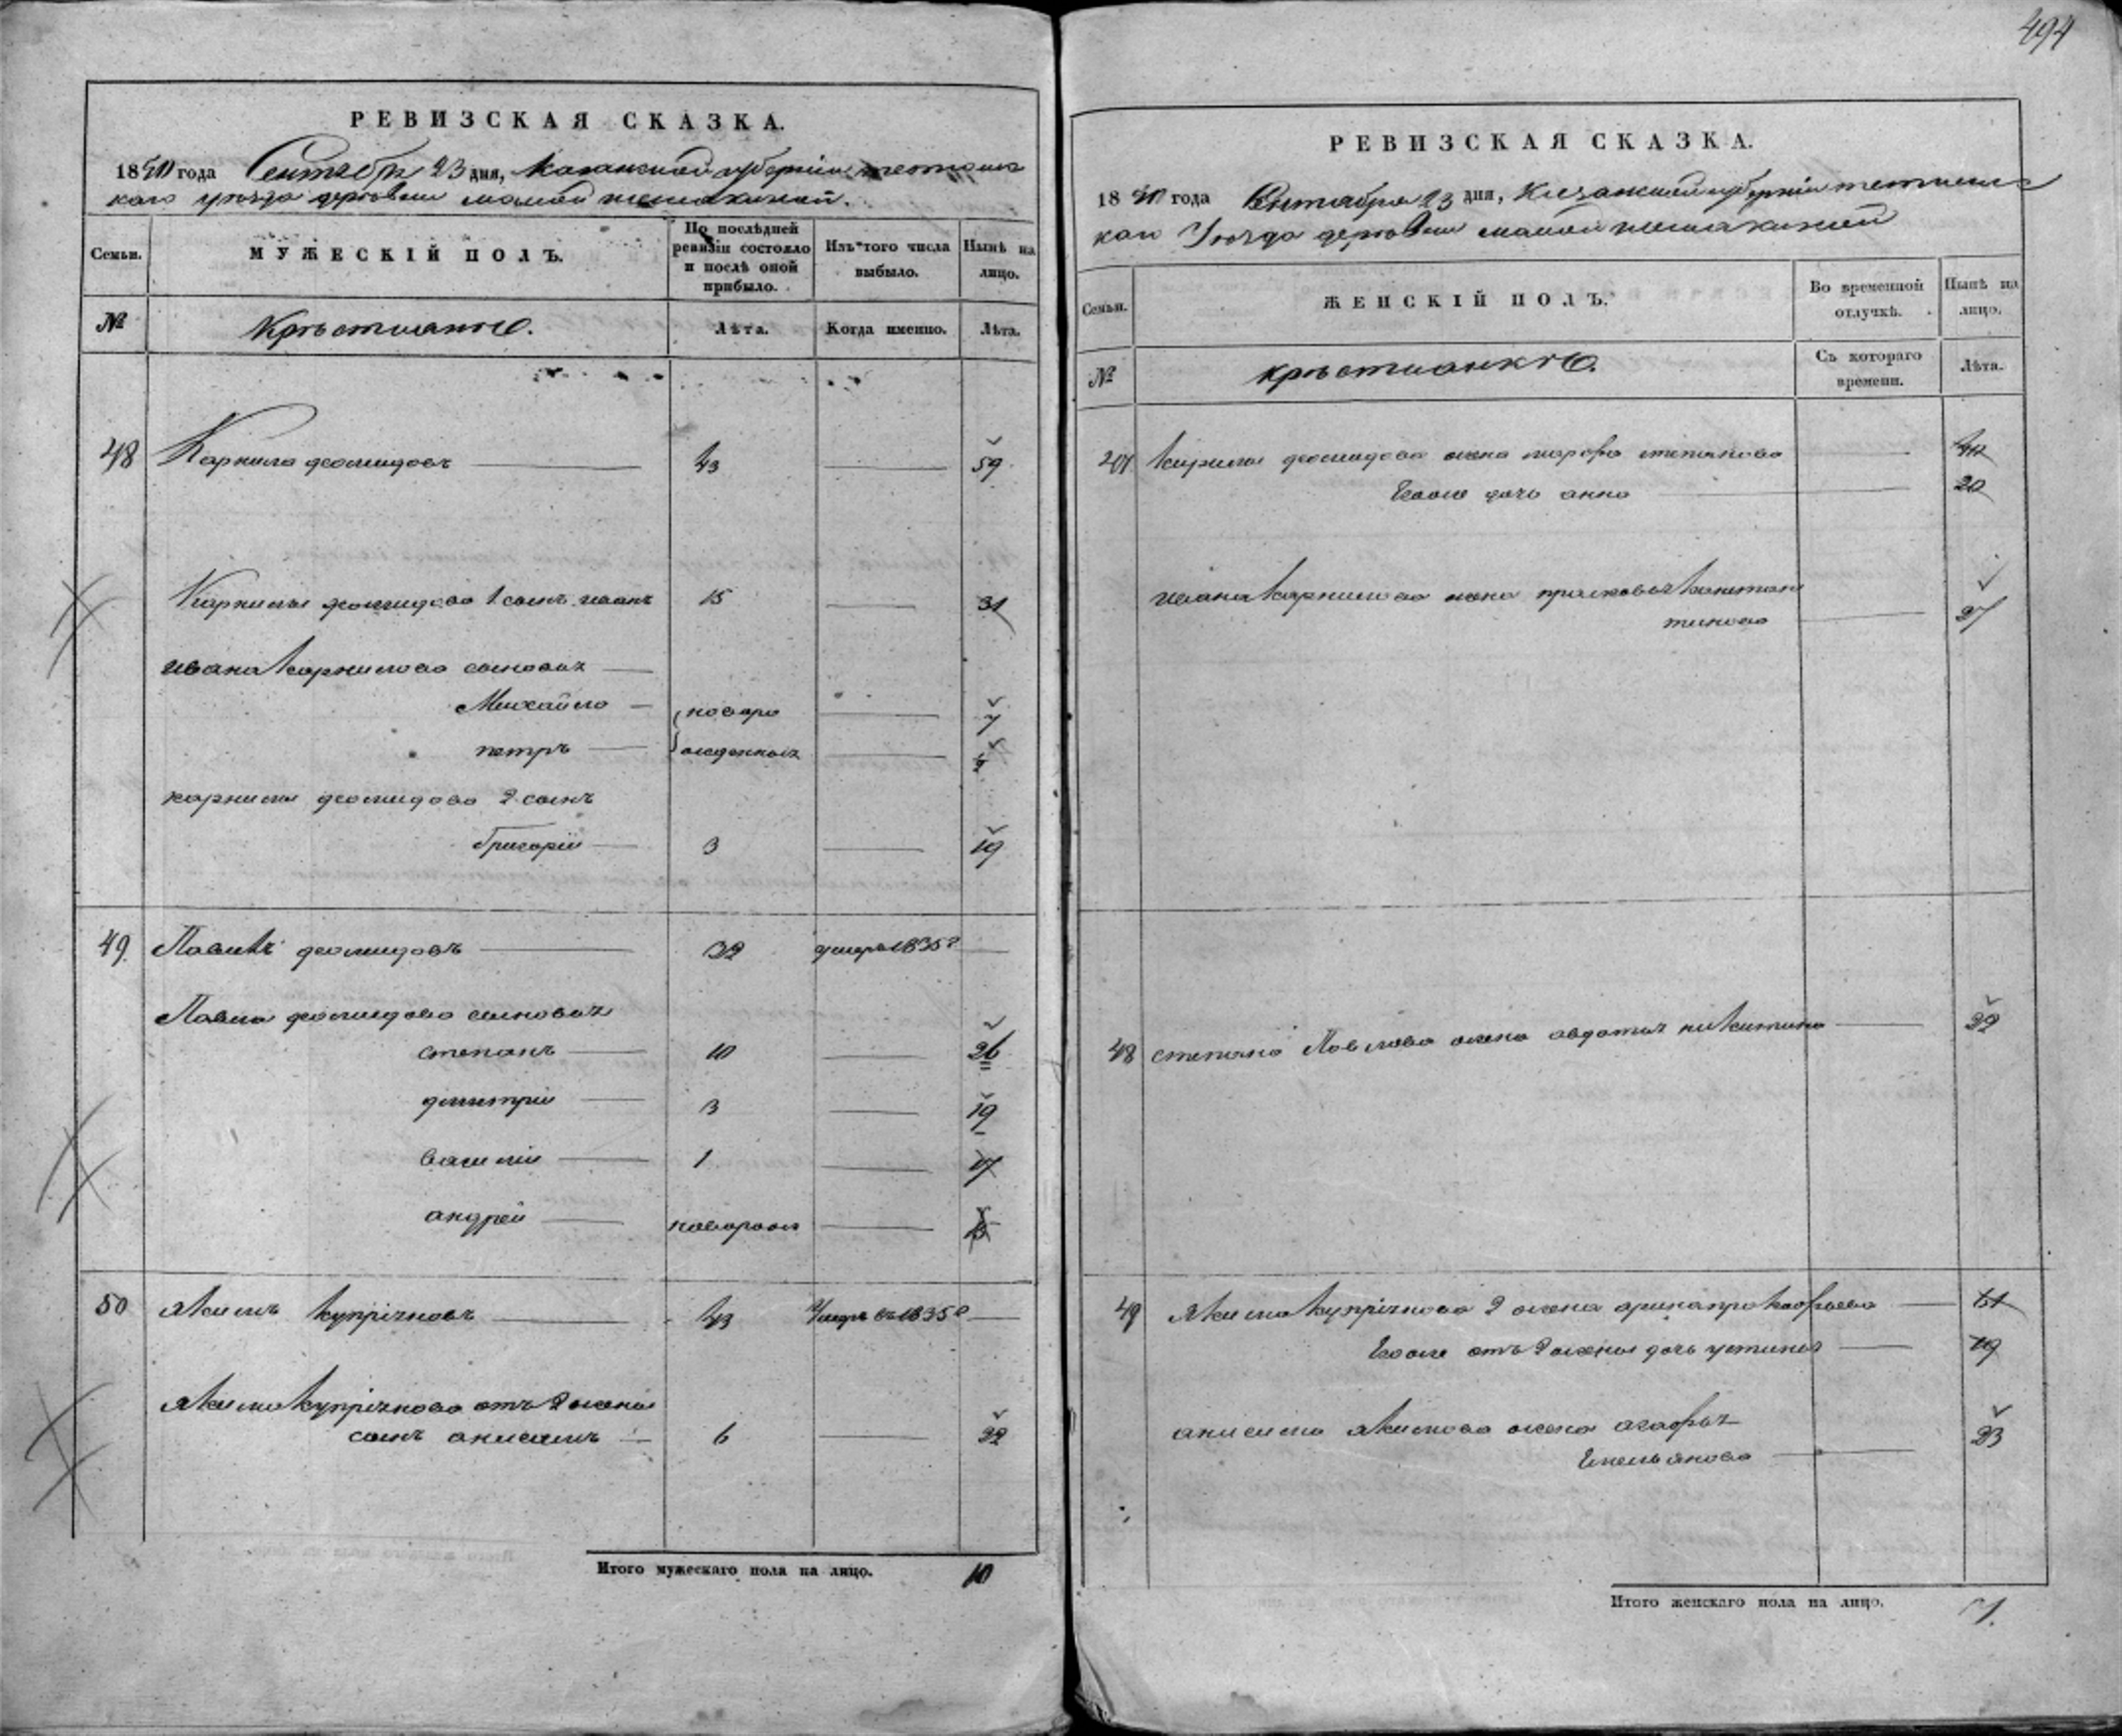 494
РЕВИЗСКАЯ СКАЗКА.
1850 года Сентября 23 дня, Казанской губернии тетюшс
каго уезда деревни малой шемякиной.
Семьи.
МУЖЕСКІЙ ПОЛЪ.
По послѣдней ревизіи состояло и послѣ оной прибыло.
Изъ того числа выбыло.
Нынѣ на лицо.
№
Крѣстианѣ.
Лѣта.
Когда именно.
Лѣта.
48 Карнило деомидовъ 43 59
Карнилы деомидова 1 сынъ иванъ 15 31
ивана карнилова сыновья
Михайло новоро 7
петръ жденныя 4
карнилы деомидова 2 сынъ
Григорій 3 19
49 Павилъ деомидовъ 32 умеръ 1835 г
Павла деомидова сыновья
степанъ 10 26
дмитрій 3 19
василій 1 17
андрей новорож 15
50 якимъ купріяновъ 43 Умеръ въ 1835 г
якима купріянова отъ 2 жены
сынъ анисимъ 6 22
Итого мужескаго пола на лицо. 10
РЕВИЗСКАЯ СКАЗКА.
1850 года Сентября 23 дня, Казанской губерніи тетюшс
каго Уезда деревни малой шемякиной
Семьи.
ЖЕНСКІЙ ПОЛЪ.
Во временной отлучкѣ.
Нынѣ на лицо.
№
крѣстианкѣ.
Съ котораго времени.
Лѣта.
карнилы деомидова жена марфа степанова
Егоже дочь анна 20
ивана карнилова жена прасковья констан
тинова 27
48 степана Павлова жена авдотья никитина 29
49 якима купріянова 2 жена арина прокофьева 61
Егоже отъ 2 жены дочь устинья 19
анисима якимова жена агафья
Емельянова 23
Итого женскаго пола на лицо. 7.